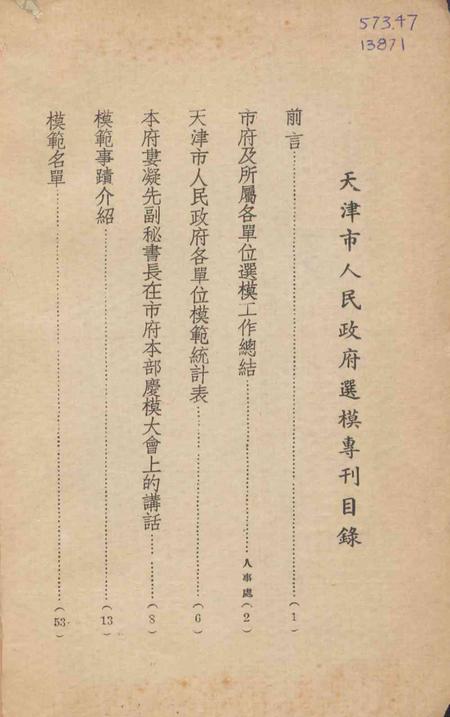 573.47
13871
天津市人民政府選模專刊目錄
前言……………………(1)
市府及所屬各單位選模工作總結……………………人事處(2)
天津市人民政府各單位模範統計表……………………(6)
本府婁凝先副秘書長在市府本部慶模大會上的講話……………………(8)
模範事蹟介紹……………………(13)
模範名單……………………(53)